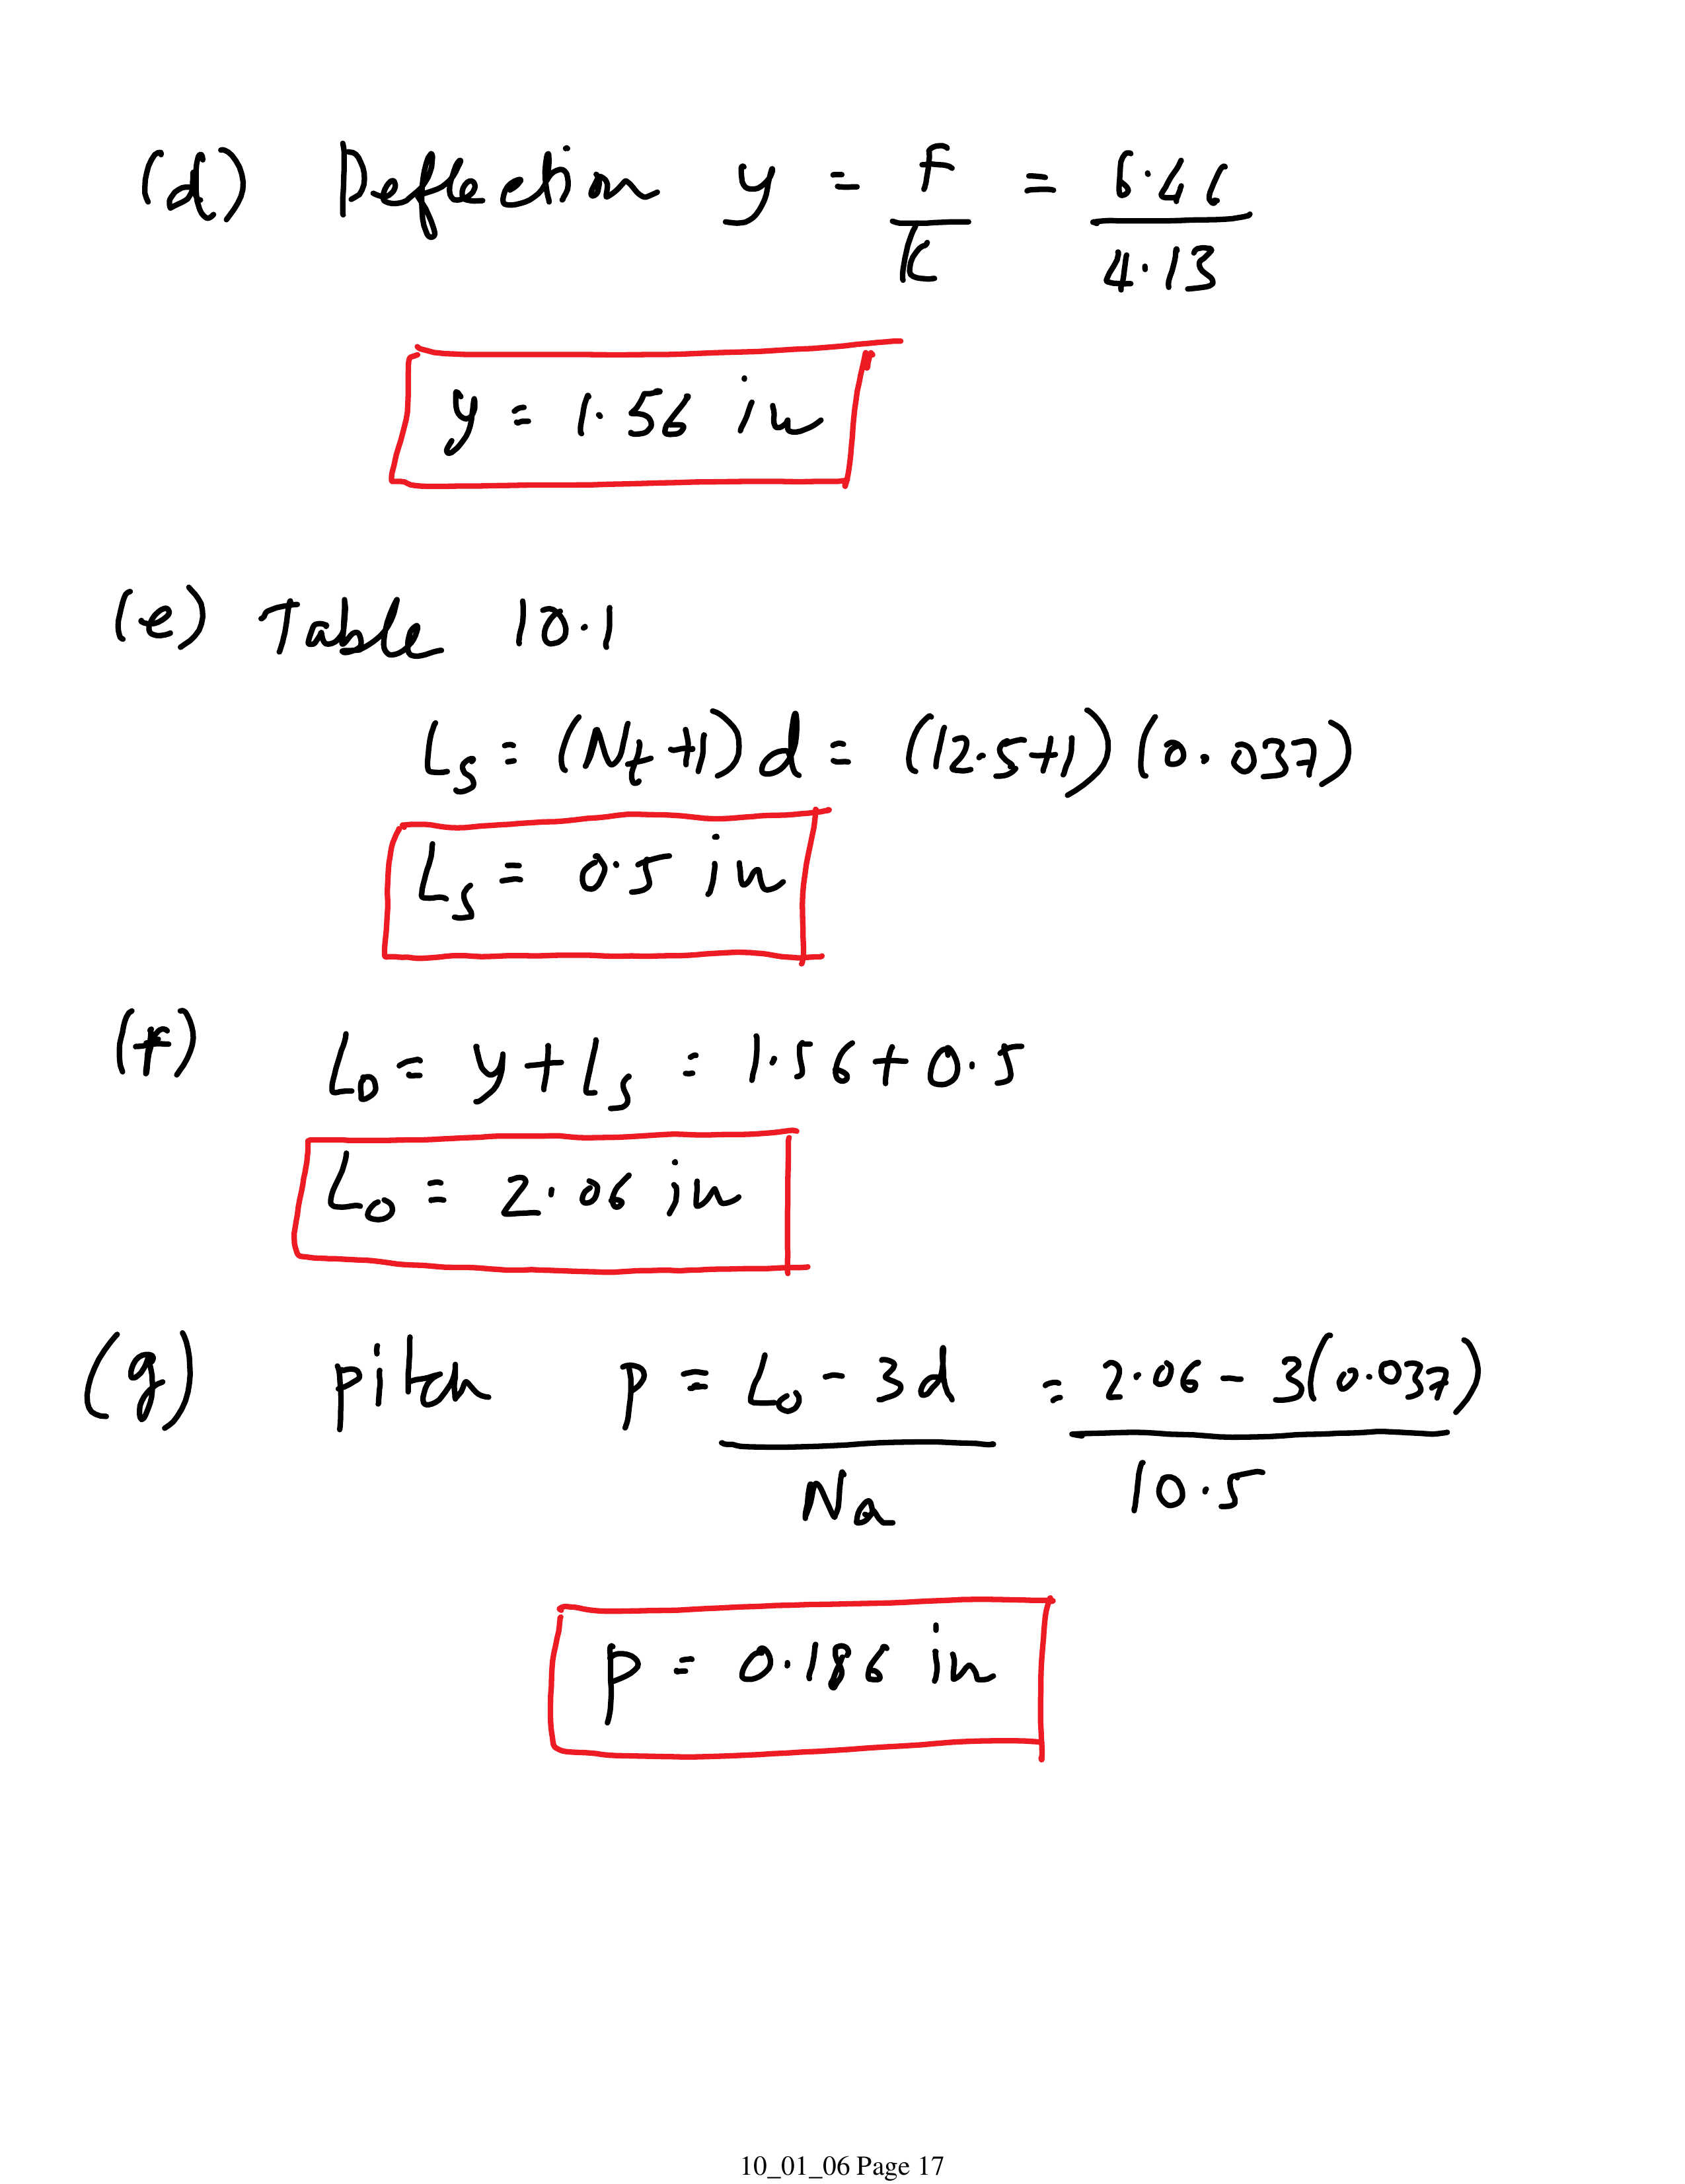 (d) Deflection y = F/K = 6.46/4.13
y = 1.56 in
(e) Table 10.1
Ls = (Nt+1)d = (12.5+1)(0.037)
Ls = 0.5 in
(f) L0 = y+Ls = 1.56+0.5
L0 = 2.06 in
(g) pitch p = L0-3d/Na = 2.06-3(0.037)/10.5
p = 0.186 in
10_01_06 Page 17